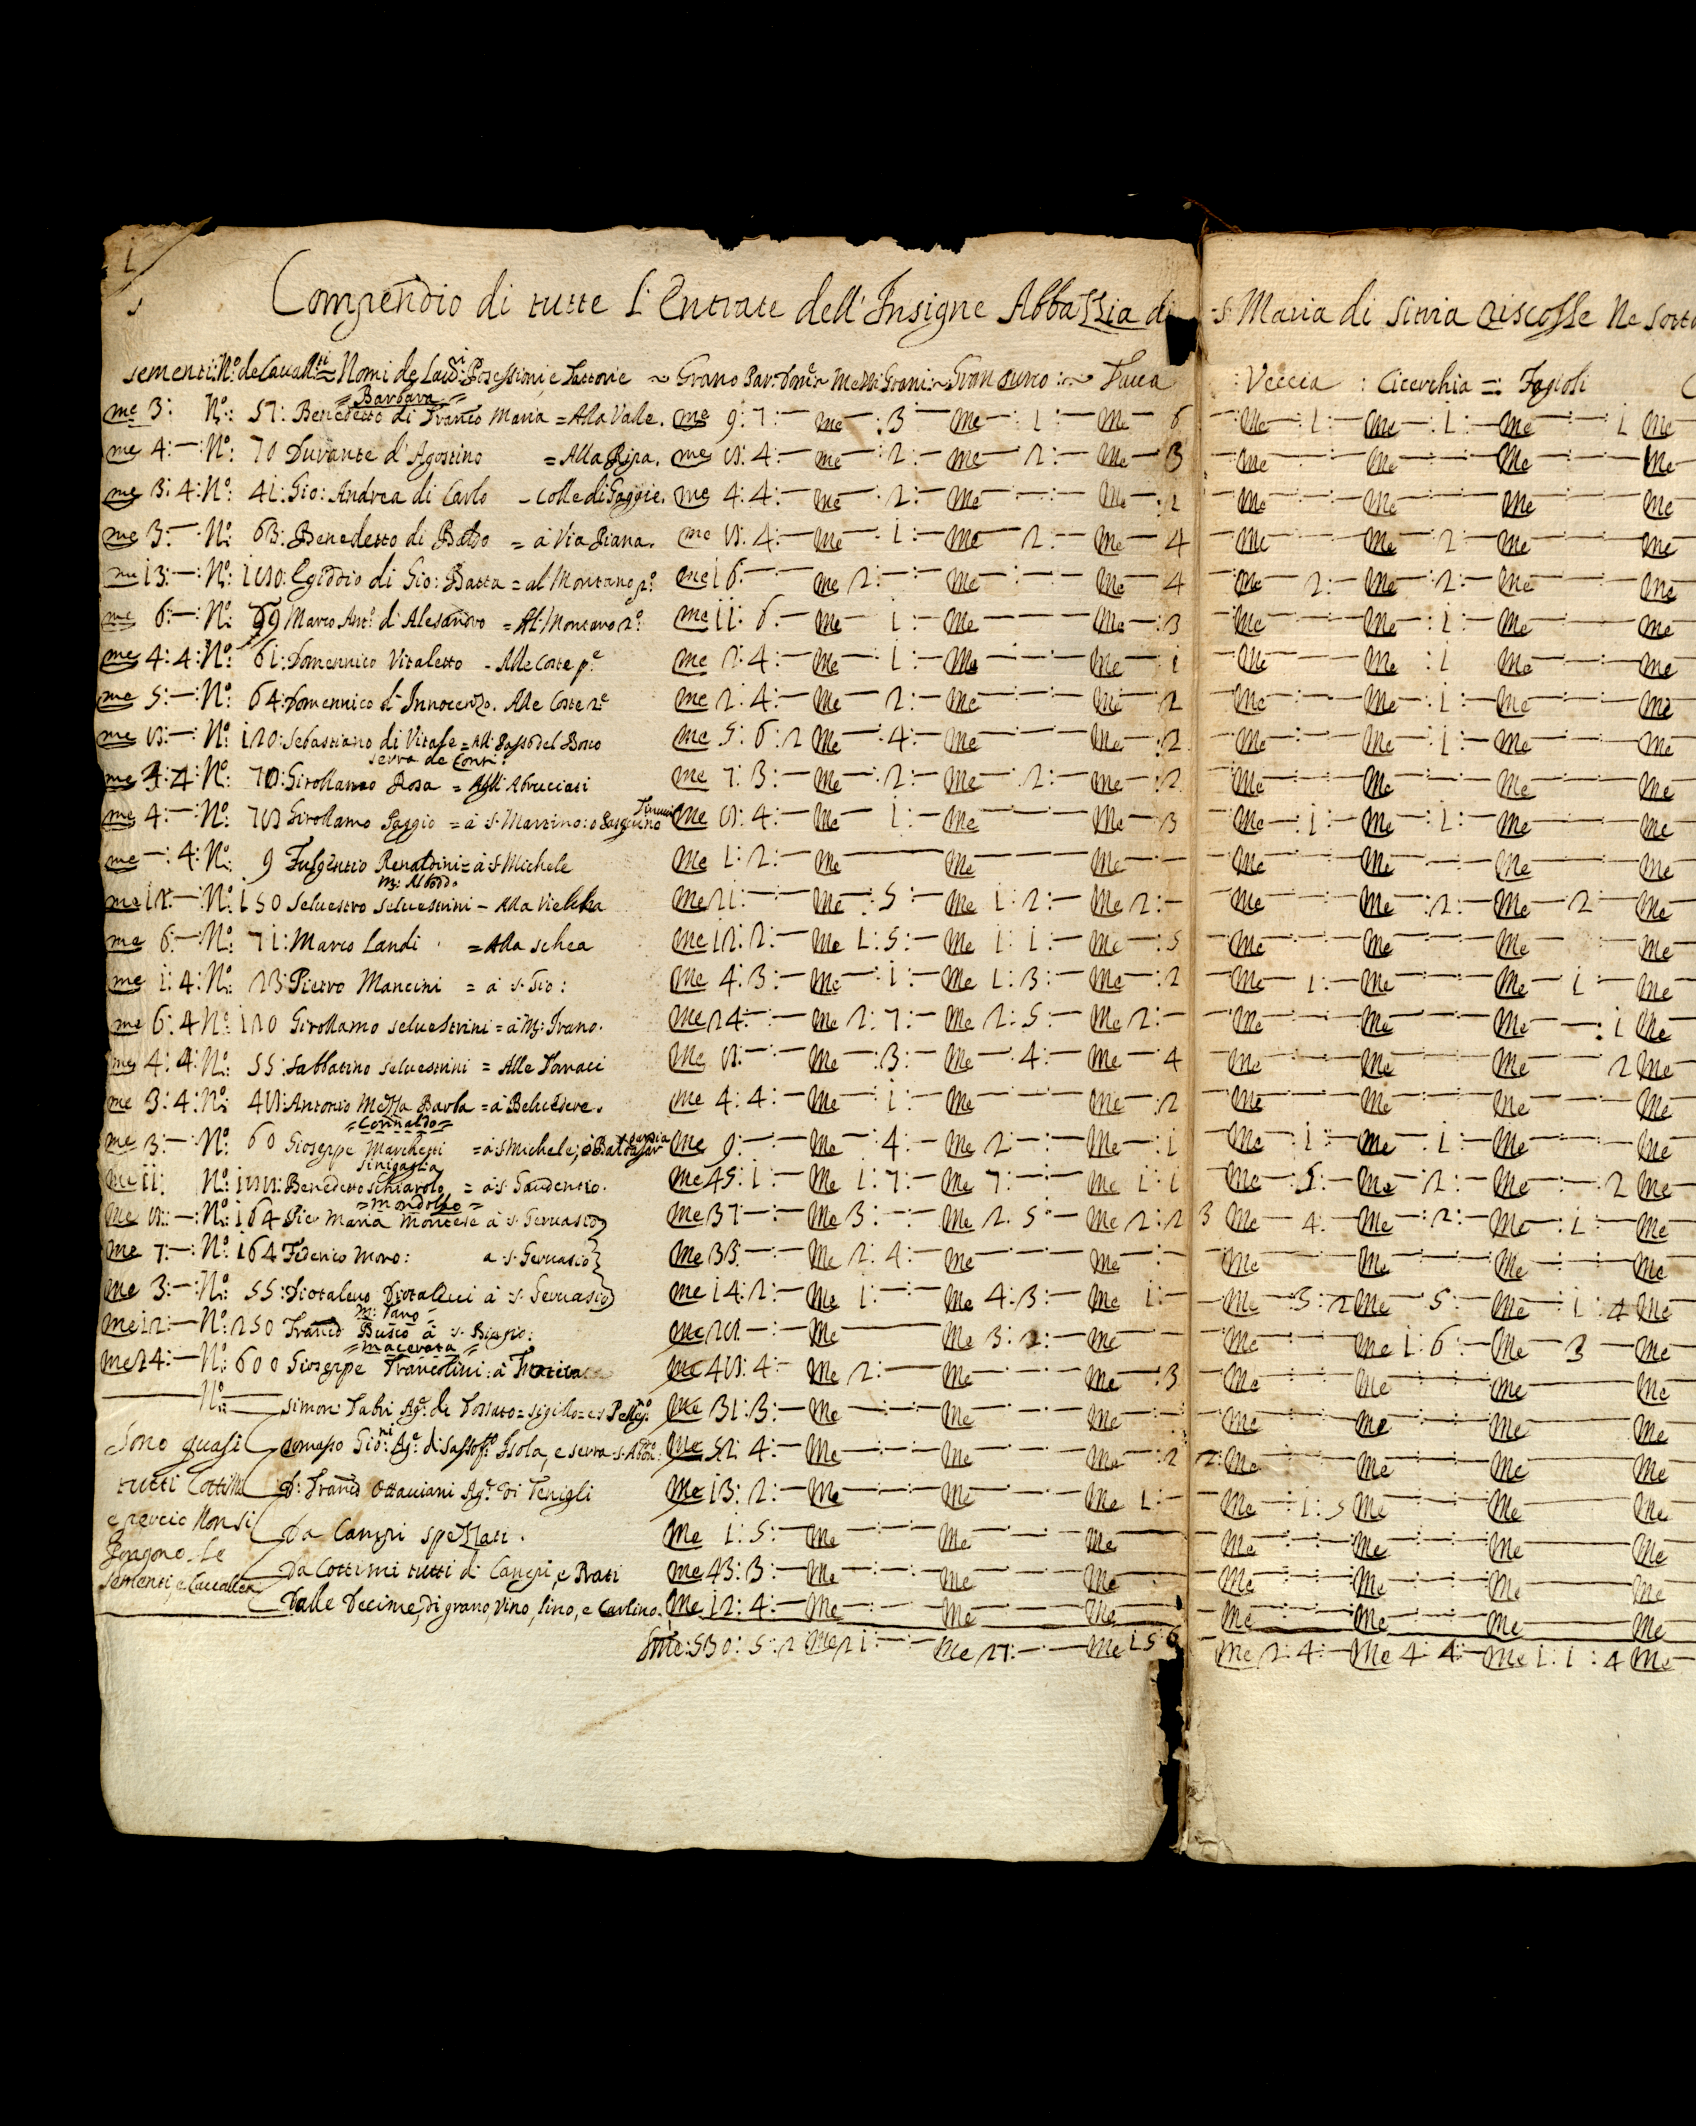 1
Compendio di tutte l'Entrate dell'Insigne Abbazzia di S. Maria di Sitria riscosse Ne sotto
Nomi de Laud.ri Posessioni e Fattorie ~ Grano Gran turco : ~ Fava : Veccia : Cicerchia = : Fagioli
= Barbara =
me 3: N.o: 57: Benedetto di Franco Maria = Alla Valle. me 9: 7:— me —: 3 — me — 1:— me — 6 me — 1:— me — 1:— me — 1 me
me 4:— N.o: 70 Durante d'Agostino = Alla Ripa. me 8: 4:— me — 2:— me 2:— me — 3 me — me — me — me
me 3: 4: N.o: 41: Gio: Andrea di Carlo - colle di Foggie. me 4: 4:— me — 2:— me — me —: 2 me — me — me — me
me 3:— N.o: 63: Benedetto di Baldo = a Via Piana. me 8: 4:— me — 1:— me 2:— me — 4 me — me 2:— me — me
me 13:— N.o: 180: Egiddio di Gio: Batta = al Montano p.o me 16:— me 2:— me — me — 4 me 2:— me 2:— me — me
me 6:— N.o: 99 Marco Ant.o d'Alesandro = Al Montano 2.o me 11: 6:— me — 1:— me — me —: 3 me — me — 1:— me — me
me 4: 4: N.o: 61: Domennico Vitaletto - Alle Coste p.e me 2: 4:— me — 1:— me — me — 1 me — me : 1 me — me
me 5:— N.o: 64: Domennico d'Innocenzo. Alle Coste 2.e me 2: 4:— me 2:— me — me — 2 me — me — 1:— me — me
me 8:— N.o: 120: Sebastiano di Vitale = All Passo del Bosco me 5: 6: 2 me — 4:— me — me —: 2 me — me — 1:— me — me
Serra de Conti:
me 3: 4: N.o: 70: Girollamo Rosa = Agli Abruciati me 7: 3:— me —: 2:— me 2:— me —: 2 me — me — me — me
me 4:— N.o: 78 Girollamo Poggio = a S. Martino: o me 8: 4:— me — 1:— me — me — 3 me — 1:— me — 1:— me — me
me —: 4: N.o: 9 Fulgentio Renaldini = a S. Michele me 1: 2:— me — me — me — me — me — me — me
M: Alboddo
me 12:— N.o: 150 Seluestro Seluestrini - Alla me 21:— me —: 5:— me 1: 2:— me 2:— me — me —: 2:— me — 2 — me
me 6:— N.o: 71: Marco Landi = Alla schea me 12: 2:— me 1: 5:— me 1: 1:— me —: 5 me — me — me — me
me 1: 4: N.o: 23 Pietro Mancini = a S. Gio: me 4: 3:— me — 1:— me 1: 3:— me —: 2 me 1:— me — me 1 — me
me 6: 4 N.o: 120 Girollamo Seluestrini = a M: me 24:— me 2: 7:— me 2: 5:— me 2:— me — me — me —: 1 me
me 4: 4: N.o: 55: Sabbatino Seluestrini = Alle Fornaci me 8:— me — 3:— me — 4:— me —: 4 me — me — me 2 me
me 3: 4: N.o: 48: Antonio Mezza Barba = a Beluedere. me 4: 4:— me — 1:— me — me —: 2 me — me — me — me
= Corinaldo =
me 3:— N.o: 60 Gioseppe Marchetti = a S. Michele; me 9:— me — 4:— me 2:— me — 1 me — 1:— me — 1:— me — me
Sinigaglia
me 11: N.o: Benedetto Schiarolo = a S. Gaudentio. me 45: 1:— me 1: 7:— me 7:— me 1: 1 me — 5:— me — 2:— me — 2 me
= Mondolfo =
me 8:— N.o: 164 Pier Maria Montese a S. Geruasio me 37:— me 3:— me 2: 5:— me 2: 2 3 me — 4:— me —: 2:— me — 1:— me
me 7:— N.o: 164 Federico Moro: a S. Geruasio me 33:— me 2: 4:— me — me — me — me — me — me
me 3:— N.o: 55: Diotaleuo Diotaleui a S. Geruasio me 14: 2:— me 1:— me 4: 3:— me 1:— me — 3: 2 me 5:— me — 1: 4 me
me 12:— N.o: 250 Franc.o Busco a S. Biagio: me 28:— me — me 3: 2:— me — me — me 1: 6:— me 3 — me
= Macerata =
me 24:— N.o: 600 Gioseppe Francolini: a me 48: 4:— me 2:— me — me —: 3 me — me — me — me
N.o: Simon Fabri Ag.e de Fossato = Sigillo = me 31: 3:— me — me — me — me — me — me — me
Sono quasi Tomasso Gio: Ag.e di Sassof.o Isola, e Serra me 52: 4:— me — me — me —: 2 2: me — me — me — me
tutti Cottimi D. Franc.o Ottauiani Ag.e di Tenigli me 13: 2:— me — me — me 1:— me — 1: 5 me — me — me
e percio Non si Da Canepi spezzati. me 1: 5:— me — me — me — me — me — me — me
Pongono Le Da Cottimi tutti di Canepi, e Prati me 43: 3:— me — me — me — me — me — me — me
Sementi, e Dalle Decime, di grano, Vino, lino, e Carlino. me 12: 4:— me — me — me — me — me — me — me
530: 5: 2 me 21:— me 27:— me 15: 6 me 2: 4:— me 4: 4:— me 1: 1: 4 me